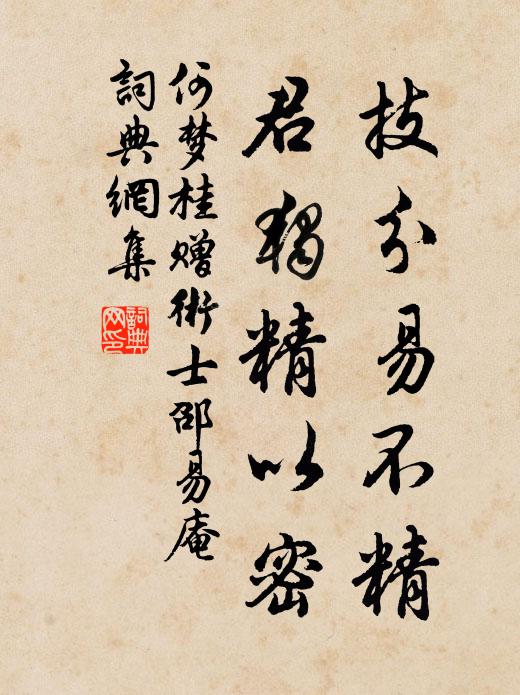 技分易不精
君獨精以密
何梦桂赠術士邵易庵
詞典網集
詞典
网印